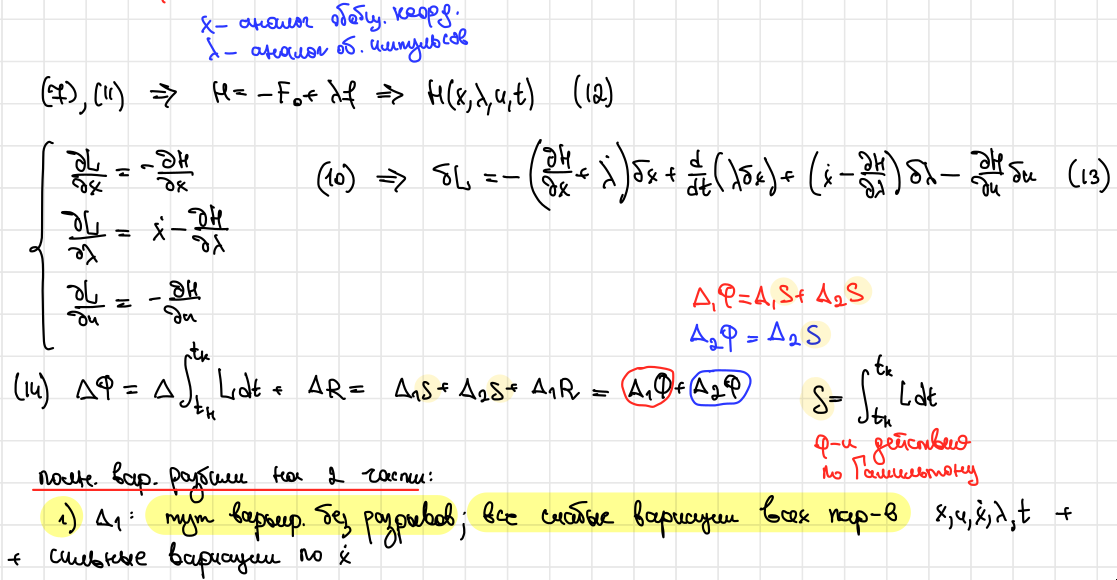 x – аналог обобщ. коорд.
λ – аналог об. импульсов
(7), (11) ⇒ H = -F₀ + λf ⇒ H(x, λ, u, t) (12)
∂L/∂x = -∂H/∂x
(10) ⇒ δL = -(∂H/∂x + λ̇)δx + d/dt(λδx) + (ẋ - ∂H/∂λ)δλ - ∂H/∂u δu (13)
∂L/∂λ = ẋ - ∂H/∂λ
∂L/∂u = -∂H/∂u
Δ₁Φ = Δ₁S + Δ₂S
Δ₂Φ = Δ₂S
(14) ΔΦ = Δ∫_{tн}^{tк} L dt + ΔR = Δ₁S + Δ₂S + Δ₁R = Δ₁Φ + Δ₂Φ
S = ∫_{tн}^{tк} L dt
ф-и действия
по Гамильтону
полн. вар. разбили на 2 части:
1) Δ₁: тут варьир. без разрывов; все слабые вариации всех пар-в x, u, ẋ, λ, t +
+ сильные вариации по ẋ